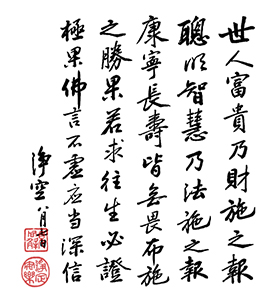 世人富貴乃財施之報
聰明智慧乃法施之報
康寧長壽皆無畏布施
之勝果若求往生必證
極果佛言不虛應當深信
淨空八月七日